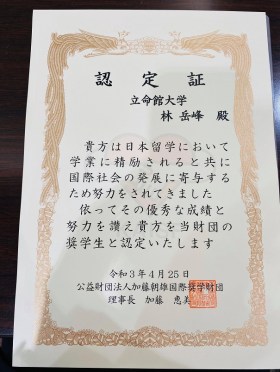 認定証
立命館大学
林 岳峰 殿
貴方は日本留学において
学業に精励されると共に
国際社会の発展に寄与する
ため努力をされてきました
依ってその優秀な成績と
努力を讃え貴方を当財団の
奨学生と認定いたします
令和3年4月25日
公益財団法人加藤朝雄国際奨学財団
理事長 加藤 恵美